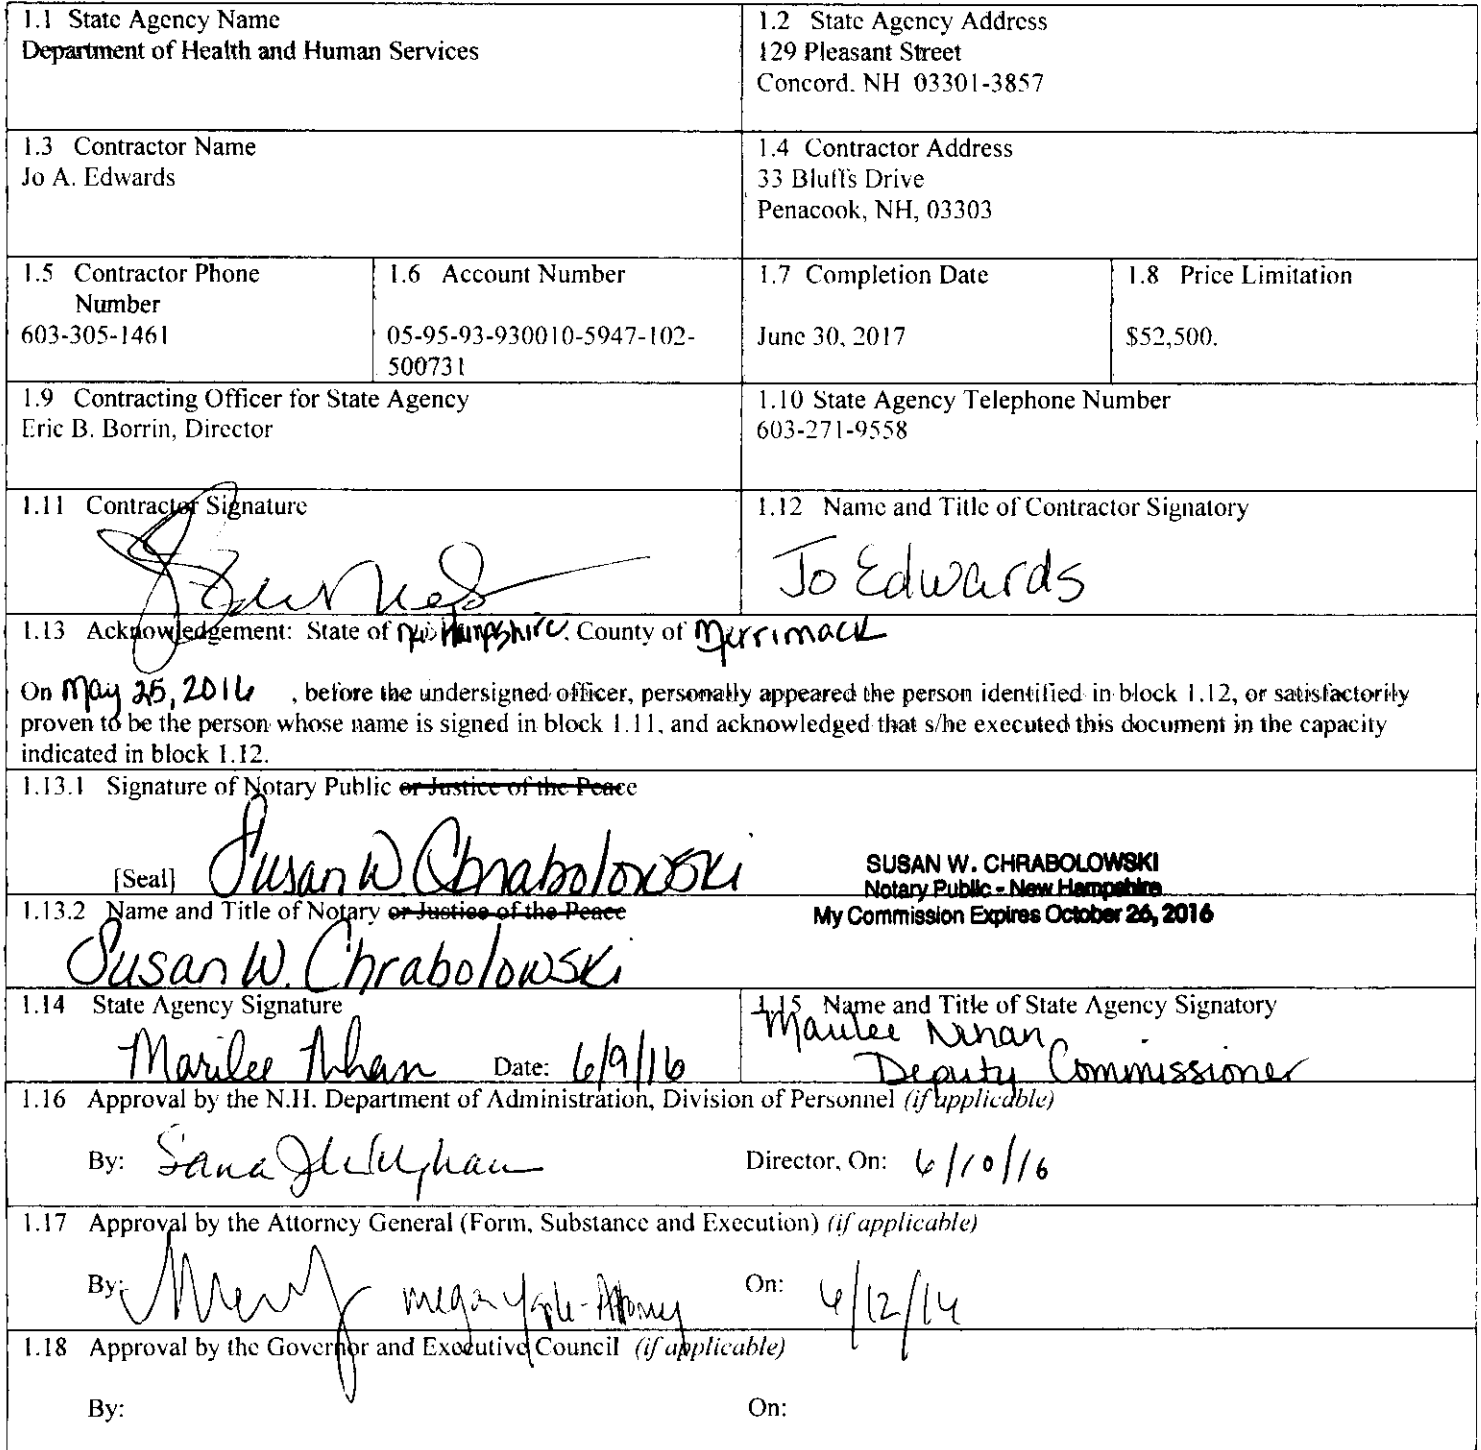 1.1 State Agency Name
Department of Health and Human Services
1.2 State Agency Address
129 Pleasant Street
Concord, NH 03301-3857
1.3 Contractor Name
Jo A. Edwards
1.4 Contractor Address
33 Bluffs Drive
Penacook, NH, 03303
1.5 Contractor Phone
Number
603-305-1461
1.6 Account Number
05-95-93-930010-5947-102-
500731
1.7 Completion Date
June 30, 2017
1.8 Price Limitation
$52,500.
1.9 Contracting Officer for State Agency
Eric B. Borrin, Director
1.10 State Agency Telephone Number
603-271-9558
1.11 Contractor Signature
1.12 Name and Title of Contractor Signatory
Jo Edwards
1.13 Acknowledgement: State of New Hampshire, County of Merrimack
On May 25, 2016 , before the undersigned officer, personally appeared the person identified in block 1.12, or satisfactorily
proven to be the person whose name is signed in block 1.11, and acknowledged that s/he executed this document in the capacity
indicated in block 1.12.
1.13.1 Signature of Notary Public or Justice of the Peace
[Seal] Susan W Chrabolowski
SUSAN W. CHRABOLOWSKI
Notary Public - New Hampshire
My Commission Expires October 26, 2016
1.13.2 Name and Title of Notary or Justice of the Peace
Susan W. Chrabolowski
1.14 State Agency Signature
Marilee Nihan Date: 6/9/16
1.15 Name and Title of State Agency Signatory
Marilee Nihan
Deputy Commissioner
1.16 Approval by the N.H. Department of Administration, Division of Personnel (if applicable)
By: Director, On: 6/10/16
1.17 Approval by the Attorney General (Form, Substance and Execution) (if applicable)
By: On:
1.18 Approval by the Governor and Executive Council (if applicable)
By: On: